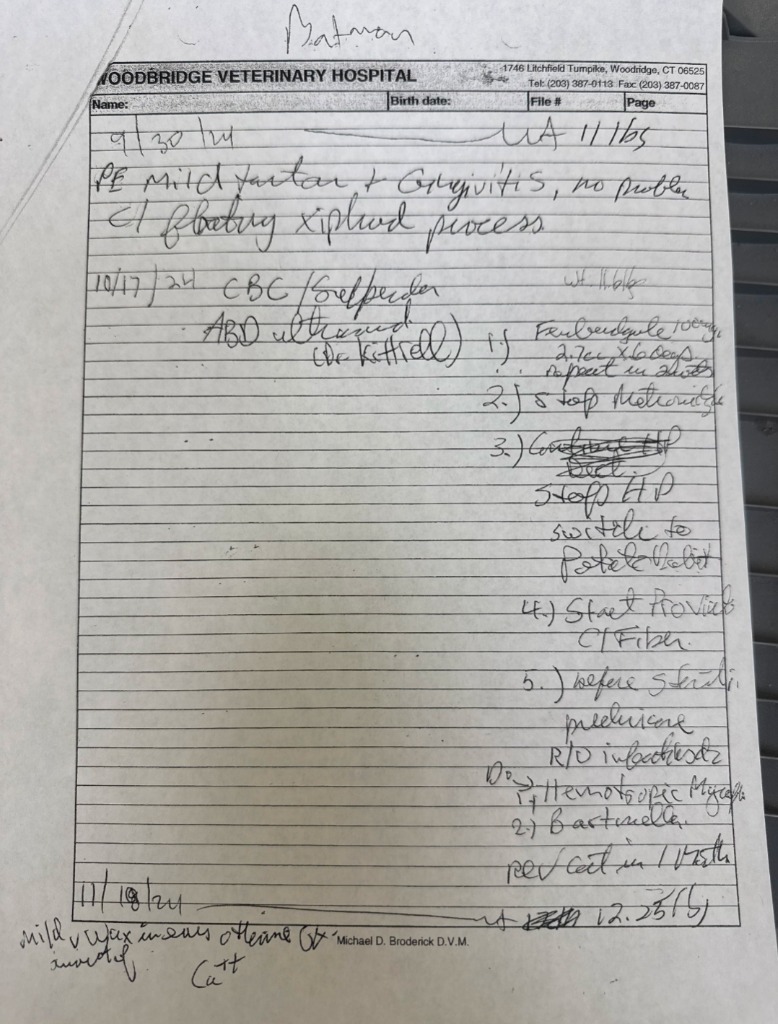 Batman
WOODBRIDGE VETERINARY HOSPITAL
1746 Litchfield Turnpike, Woodridge, CT 06525
Tel: (203) 387-0113 Fax: (203) 387-0087
Name: Birth date: File # Page
9/30/24 UA 11 lbs
PE Mild tartar + Gingivitis, no problem
C/ floating xiphoid process
10/17/24 CBC/Superchem wt. 11.6 lbs
ABD ultrasound
(Dr. Kittrell)
1.) Fenbendazole 100mg/
2.7cc x 6 days
repeat in 2
2.) Stop Metronidazole
3.)
Stop HP
switch to
Potato Rabbit
4.) Start
C/ Fiber.
5.) before
R/O
Do
1) Hemotropic
2.) Bartonella
in 1 month
11/18/24 12.25 lbs
Mild wax in ears
Ca++
Michael D. Broderick D.V.M.